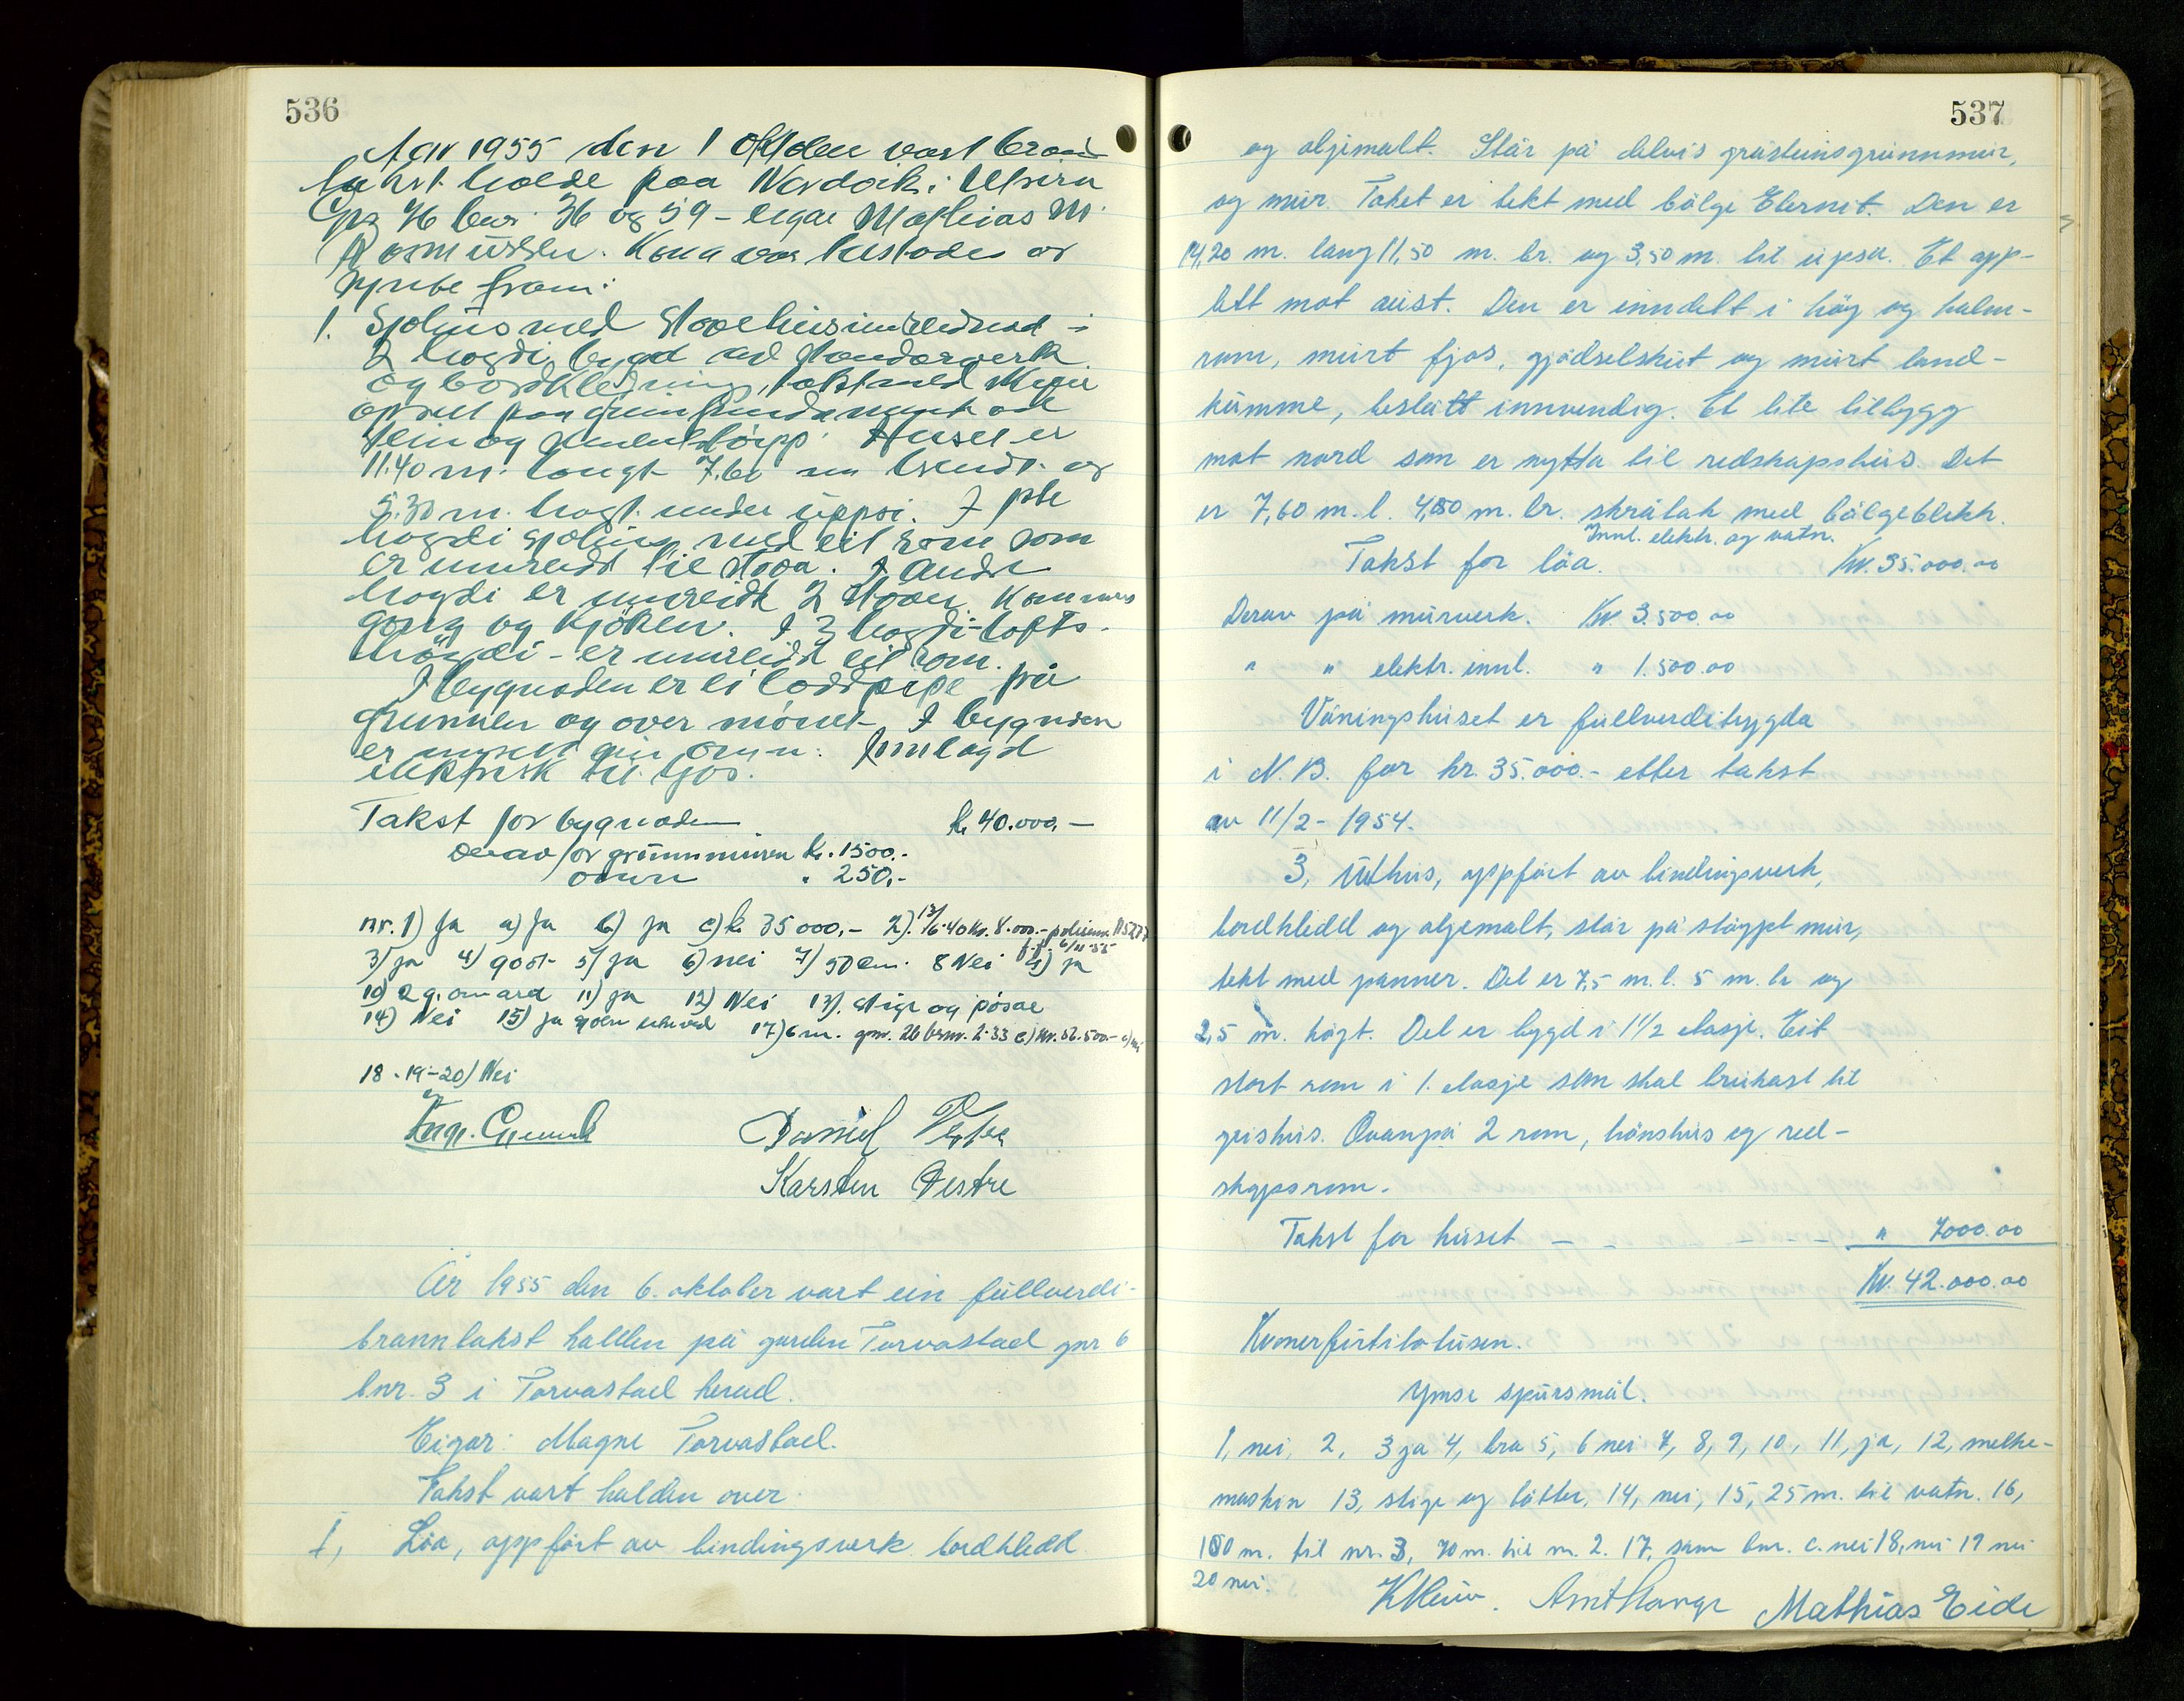 536
Aar 1955 den 1 Oktober vart brand
takst halde paa Nordvik i Utsira
Gnr 46 bnr. 36 og 59 - eigar Mathias M.
Rasmussen.
fram:
1. Sjøhus med
2 høgdi, bygd
og bordkledning, tekt med
Huset er
11.40 m. langt 7.60 m breidt og
5.30 m. høgt under uppsi. I
høgdi sjøhus med eit rom som
er innreidt til stova. I andre
høgdi er innreidt 2 stover
gang og kjøken. I 3 høgdi - lofts-
høgdi - er innreidt eit rom.
I bygnaden er ei på
grunnen og over mønet. I bygnaden
er omn. Innlagd
elektrisk til ljos.
Takst for bygnaden kr 40.000,-
Derav for grunnmuren kr. 1500.-
omnen " 250,-
nr. 1) Ja a) Ja b) ja c) kr 35000,- 2)
3) ja 4) godt 5) ja 6) nei 7) 50 cm. 8 Nei 9) ja
10) 2 g. om året 11) ja 12) Nei 13). Stige og pøsar
14) Nei 15) ja 17) 6 m. gnr. 26 brnr. 2.33
18-19-20) Nei
Daniel
Karsten Vestre
År 1955 den 6. oktober vart ein fullverdi-
branntakst halden på garden Torvastad gnr 6
bnr. 3 i Torvastad herad.
Eigar: Magne Torvastad.
Takst vart halden over:
1, Löa, oppfört av bindingsverk bordkledd
537
og oljemalt. Står på delvis gråsteinsgrunnmur,
og mur. Taket er tekt med bölge Eternit. Den er
14,20 m. lang 11,50 m. br. og 3,50 m. til upsa. Et opp-
lett mot aust. Den er inndelt i höy og halm-
rom, murt fjos, gjödselskut og murt land-
kumme, beslått innvendig. Et lite tilbygg
mot nord som er nytta til redskapshus. Det
er 7,60 m. l. 4,80 m. br. skråtak med bölgeblikk.
Innl. elektr. og vatn.
Takst for löa. Kr. 35.000.00
Derav på murverk. Kr. 3.500.00
" " elektr. innl. " 1.500.00
Våningshuset er fullverditrygda
i N.B. for kr. 35.000.- etter takst
av 11/2- 1954.
3, Uthus, oppfört av bindingsverk,
bordkledd og oljemalt, står på stöypt mur,
tekt med panner. Det er 7,5 m. l. 5 m. br og
2,5 m. högt. Det er bygd i 1 1/2 etasje. Eit
stort rom i 1. etasje som skal brukast til
grishus. Ovanpå 2 rom, hönshus og red-
skapsrom.
Takst for huset - - - - " 7000.00
Kr. 42.000.00
Ymse spursmål.
1, nei, 2, 3 ja 4, bra 5, 6 nei 7, 8, 9, 10, 11, ja, 12, melke-
maskin 13, stige og bötter, 14, nei, 15, 25 m. til vatn. 16,
100 m. til nr. 3, 70 m. til nr. 2. 17, samme bnr. c. nei 18, nei 19 nei
20 nei.
Mathias Eide